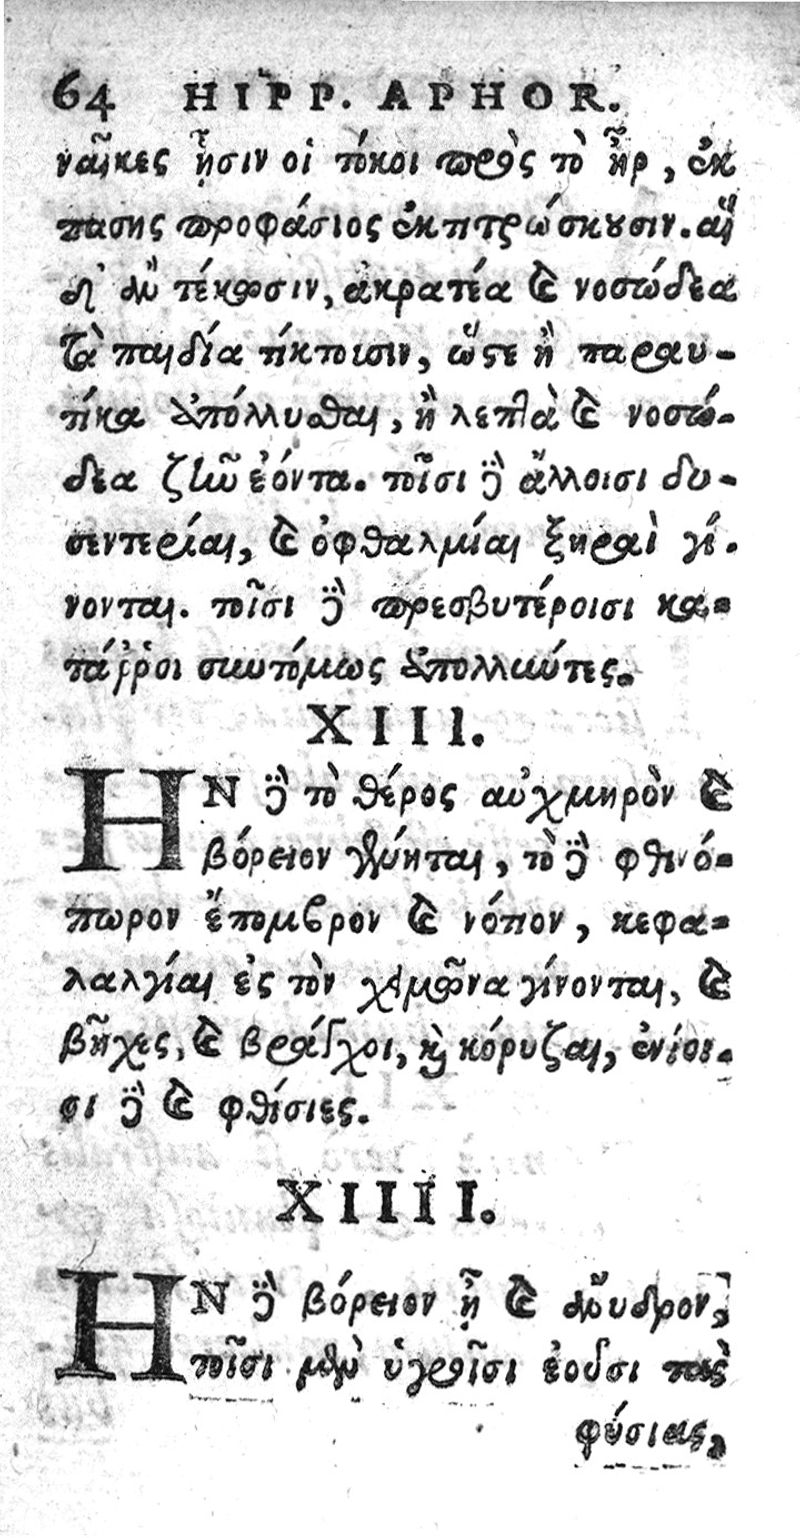 64 HIPP. APHOR.
ναῖκες ᾗσιν οἱ τόκοι πρὸς τὸ ἦρ, ἐκ
πάσης προφάσιος ἐκπτρώσκουσιν. αἳ
δ' ἂν τέκωσιν, ἀκρατέα καὶ νοσώδεα
τὰ παιδία τίκτουσιν, ὥστε ἢ παραυ-
τίκα ἀπόλλυσθαι, ἢ λεπτὰ καὶ νοσώ-
δεα ζῆν ἐόντα. τοῖσι δὲ ἄλλοισι δυ-
σεντερίαι, καὶ ὀφθαλμίαι ξηραὶ γί-
νονται. τοῖσι δὲ πρεσβυτέροισι κα-
τάῤῥοι συντόμως ἀπολλύντες.
XIII.
ΗΝ δὲ τὸ θέρος αὐχμηρὸν καὶ
βόρειον γένηται, τὸ δὲ φθινό-
πωρον ἔπομβρον καὶ νότιον, κεφα-
λαλγίαι ἐς τὸν χειμῶνα γίνονται, καὶ
βῆχες, καὶ βράγχοι, καὶ κόρυζαι, ἐνίοι-
σι δὲ καὶ φθίσιες.
XIIII.
ΗΝ δὲ βόρειον ᾖ καὶ ἄνυδρον,
τοῖσι μὲν ὑγροῖσι ἐοῦσι τὰς
φύσιας,